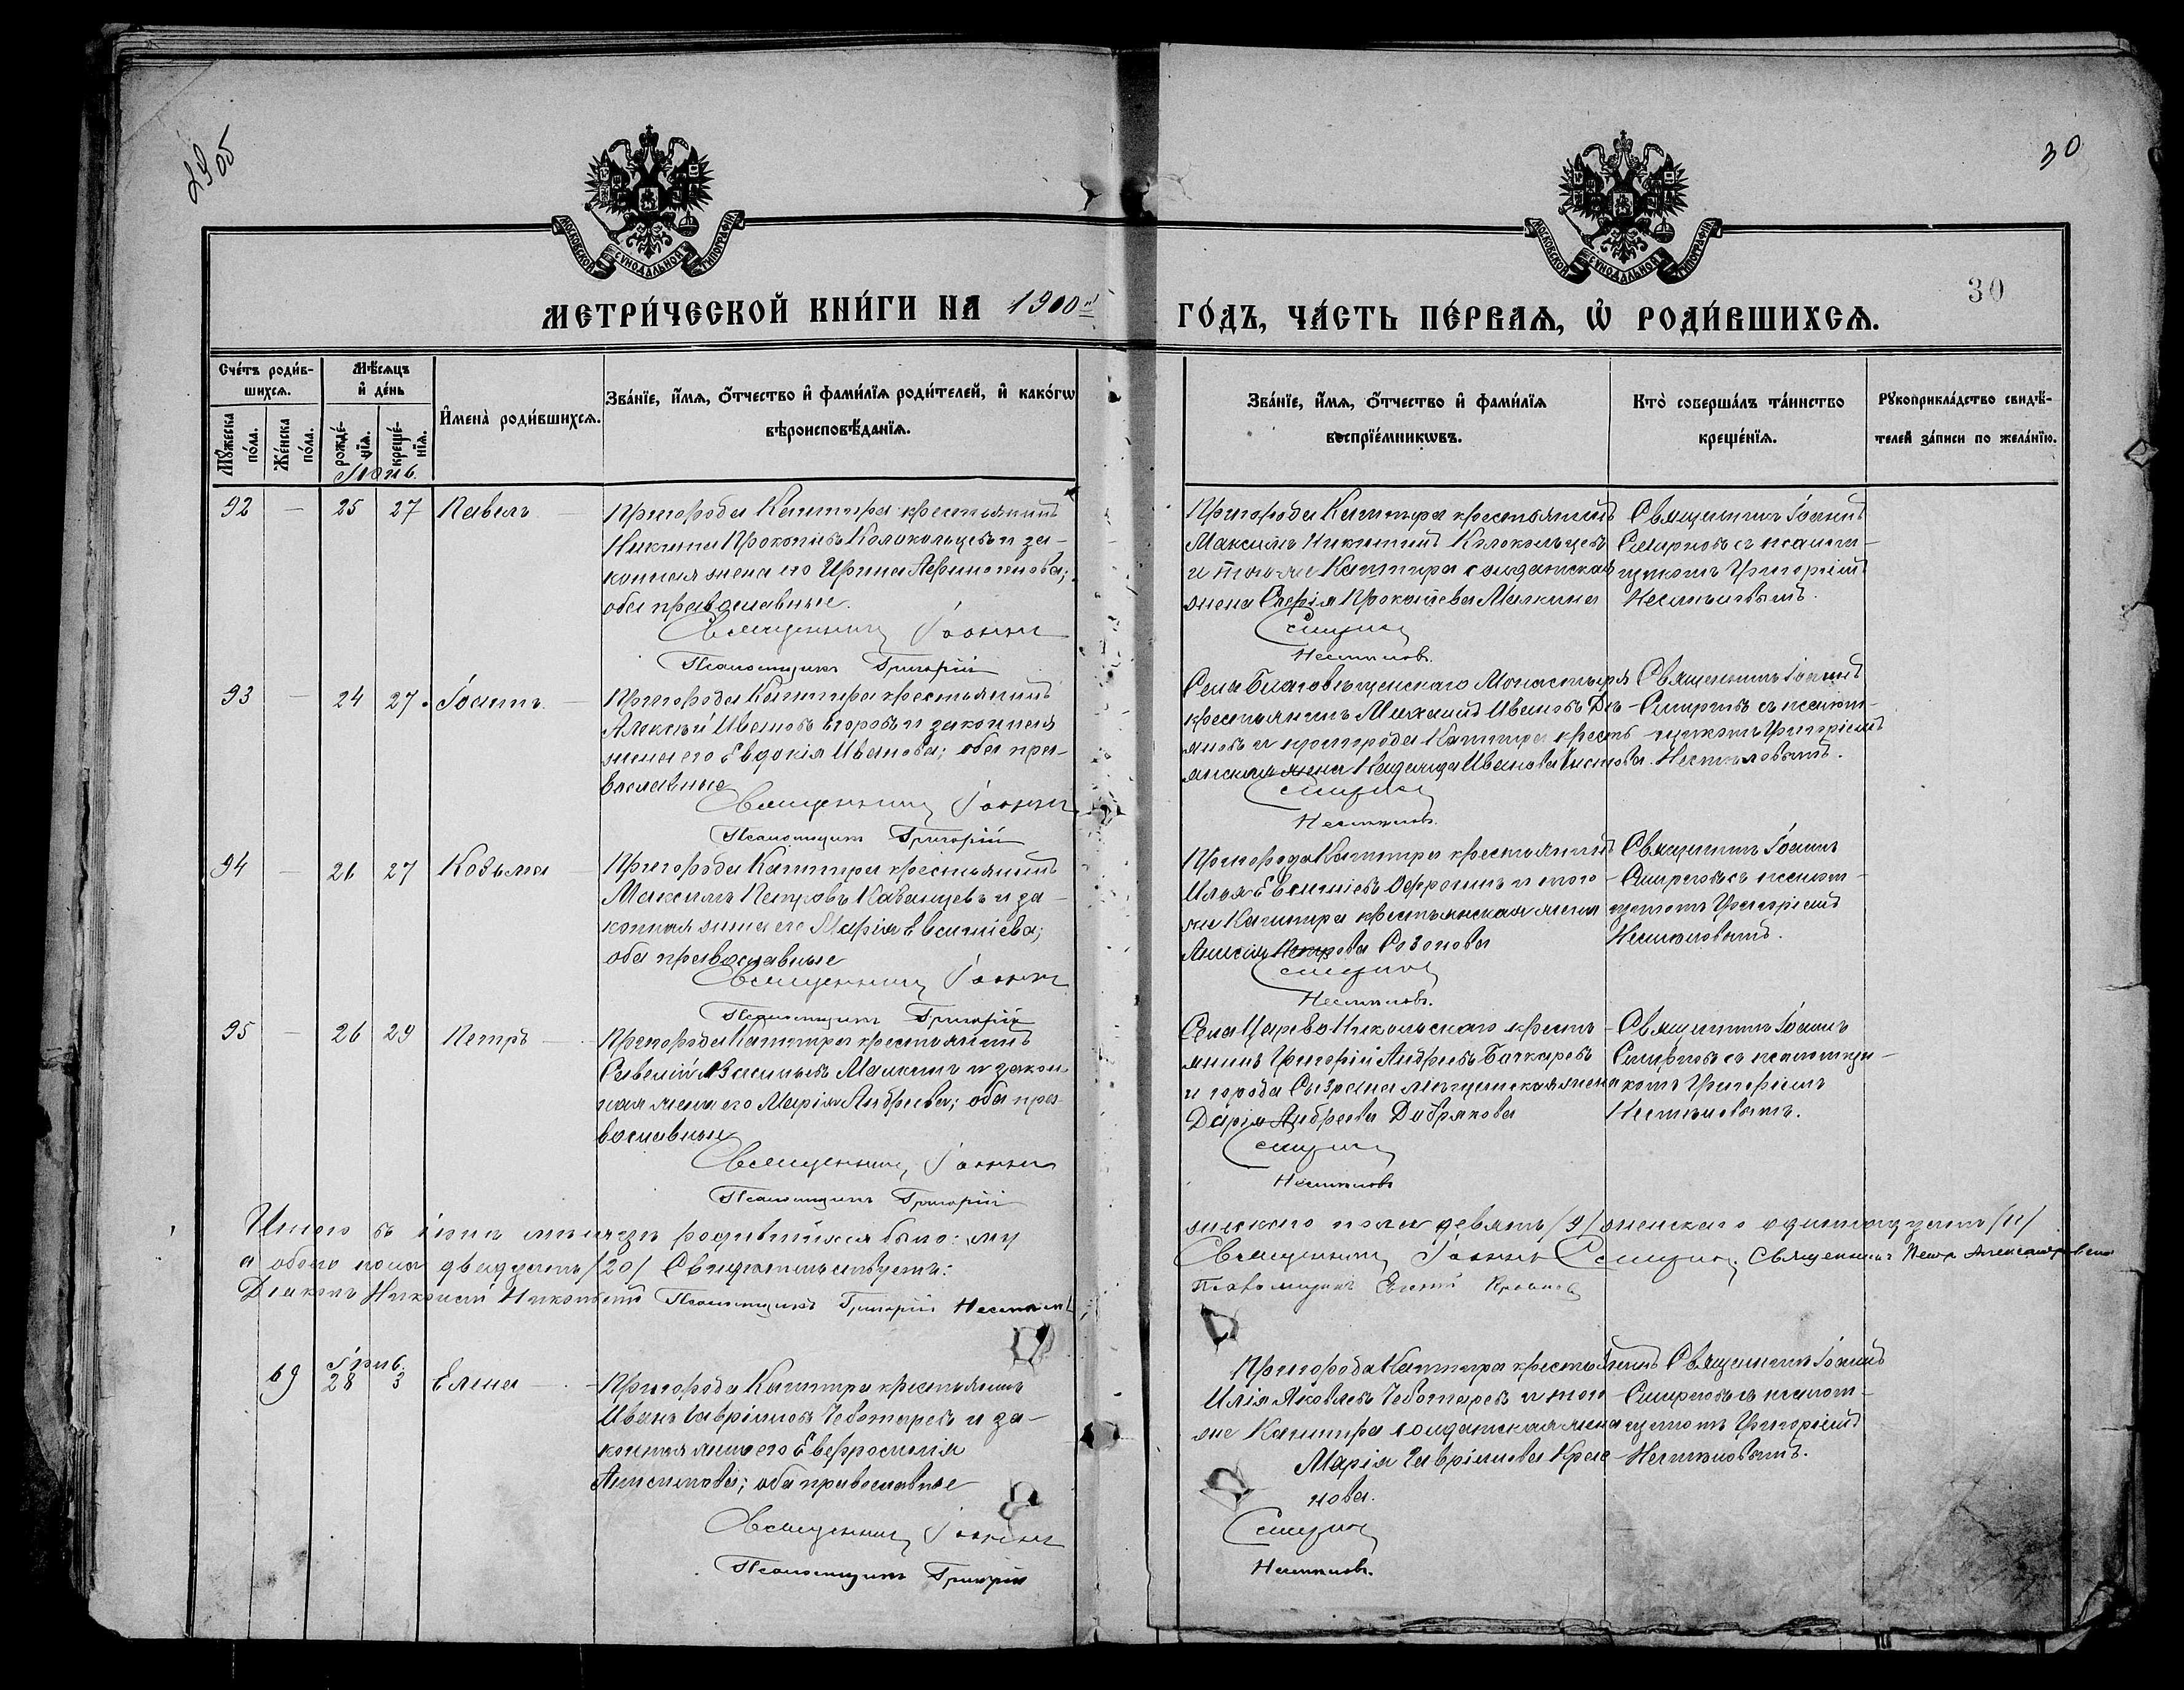 29 об
30
МОСКОВСКОЙ СУНОДАЛЬНОЙ ТИПОГРАФІИ
МОСКОВСКОЙ СУНОДАЛЬНОЙ ТИПОГРАФІИ
30
МЕТРИ́ЧЕСКОЙ КНИ́ГИ НА 1900й
ГО́ДЪ, ЧА́СТЬ ПЕ́РВАѦ, Ѡ҆ РОДИ́ВШИХСѦ.
Сче́тъ роди́в-
шихсѧ.
Мꙋ́жеска
по́ла.
Же́нска
по́ла.
Мѣ́сѧцъ
и҆ де́нь
рожде́-
нїѧ.
креще́-
нїѧ.
И҆мена̀ роди́вшихсѧ.
Зва́нїе, и҆́мѧ, ѻ҆́тчество и҆ фами́лїѧ роди́телей, и҆ како́гѡ
вѣроисповѣ́данїѧ.
Зва́нїе, и҆́мѧ, ѻ҆́тчество и҆ фами́лїѧ
воспрїе́мникѡвъ.
Кто̀ соверша́лъ та́инство
креще́нїѧ.
Рꙋкоприкла́дство свидѣ́-
телей за́писи по жела́нїю.
92 — 25 27 Павелъ
Пригорода Кашпира крестьянинъ
Никита Прокопіевъ Колокольцевъ и за-
конная жена его Ирина Афиногенова;
оба православные.
Священникъ Іоаннъ
Псаломщикъ Григорій
Пригорода Кашпира крестьянинъ
Максимъ Никитинъ Колокольцевъ
и того же Кашпира солдатская
жена Прокопіева Малкина
Смирнов
Священникъ Іоаннъ
Смирновъ съ псалом-
щикомъ Григоріемъ
93 — 24 27 Іоаннъ
Пригорода Кашпира крестьянинъ
Алексѣй Ивановъ Егоровъ и законная
жена его Евдокія Иванова; оба пра-
вославные
Священникъ Іоаннъ
Псаломщикъ Григорій
Села Благовѣщенскаго Монастыря
крестьянинъ Михаилъ Ивановъ
и пригорода Кашпира кресть-
янская жена Надежда Иванова
Смирнов
Священникъ Іоаннъ
Смирновъ съ псалом-
щикомъ Григоріемъ
94 — 26 27 Козьма
Пригорода Кашпира крестьянинъ
Максимъ Петровъ Казанцевъ и за-
конная жена его Марія Евсигніева;
оба православные
Священникъ Іоаннъ
Псаломщикъ Григорій
Пригорода Кашпира крестьянинъ
Илья Евсигніевъ и того-
же Кашпира крестьянская жена
Петрова Созонова
Смирнов
Священникъ Іоаннъ
Смирновъ съ псалом-
щикомъ Григоріемъ
95 — 26 29 Петръ
Пригорода Кашпира крестьянинъ
Савелій Васильевъ Малкинъ и закон
ная жена его Марія Андреева; оба пра-
вославные
Священникъ Іоаннъ
Псаломщикъ Григорій
Села Царево Никольскаго кресть-
янинъ Григорій Андреевъ Бочкаревъ
и города Сызрана мѣщанская жена
Дарія Андреева Добрякова
Смирнов
Священникъ Іоаннъ
Смирновъ съ псаломщи-
комъ Григоріемъ
Итого въ іюнѣ мѣсяцѣ родившихся было: му
жскаго пола девять /9/ женскаго одиннадцать /11/
а обоего пола двадцать /20/ Свидѣтельствуемъ:
Священникъ Іоаннъ Смирнов. Священникъ Петръ
Діаконъ Никольскій Псаломщикъ Григорій
Псаломщикъ
69 28 3 Елена
Пригорода Кашпира крестьянинъ
Иванъ Гавріиловъ Чеботаревъ и за-
конная жена его Евфросинія
Анисимова; оба православные
Священникъ Іоаннъ
Псаломщикъ Григорій
Пригорода Кашпира крестьянинъ
Илія Яковлевъ Чеботаревъ и того-
же Кашпира солдатская жена
Марія Гавріилова
нова.
Смирнов
Священникъ Іоаннъ
Смирновъ съ псалом-
щикомъ Григоріемъ